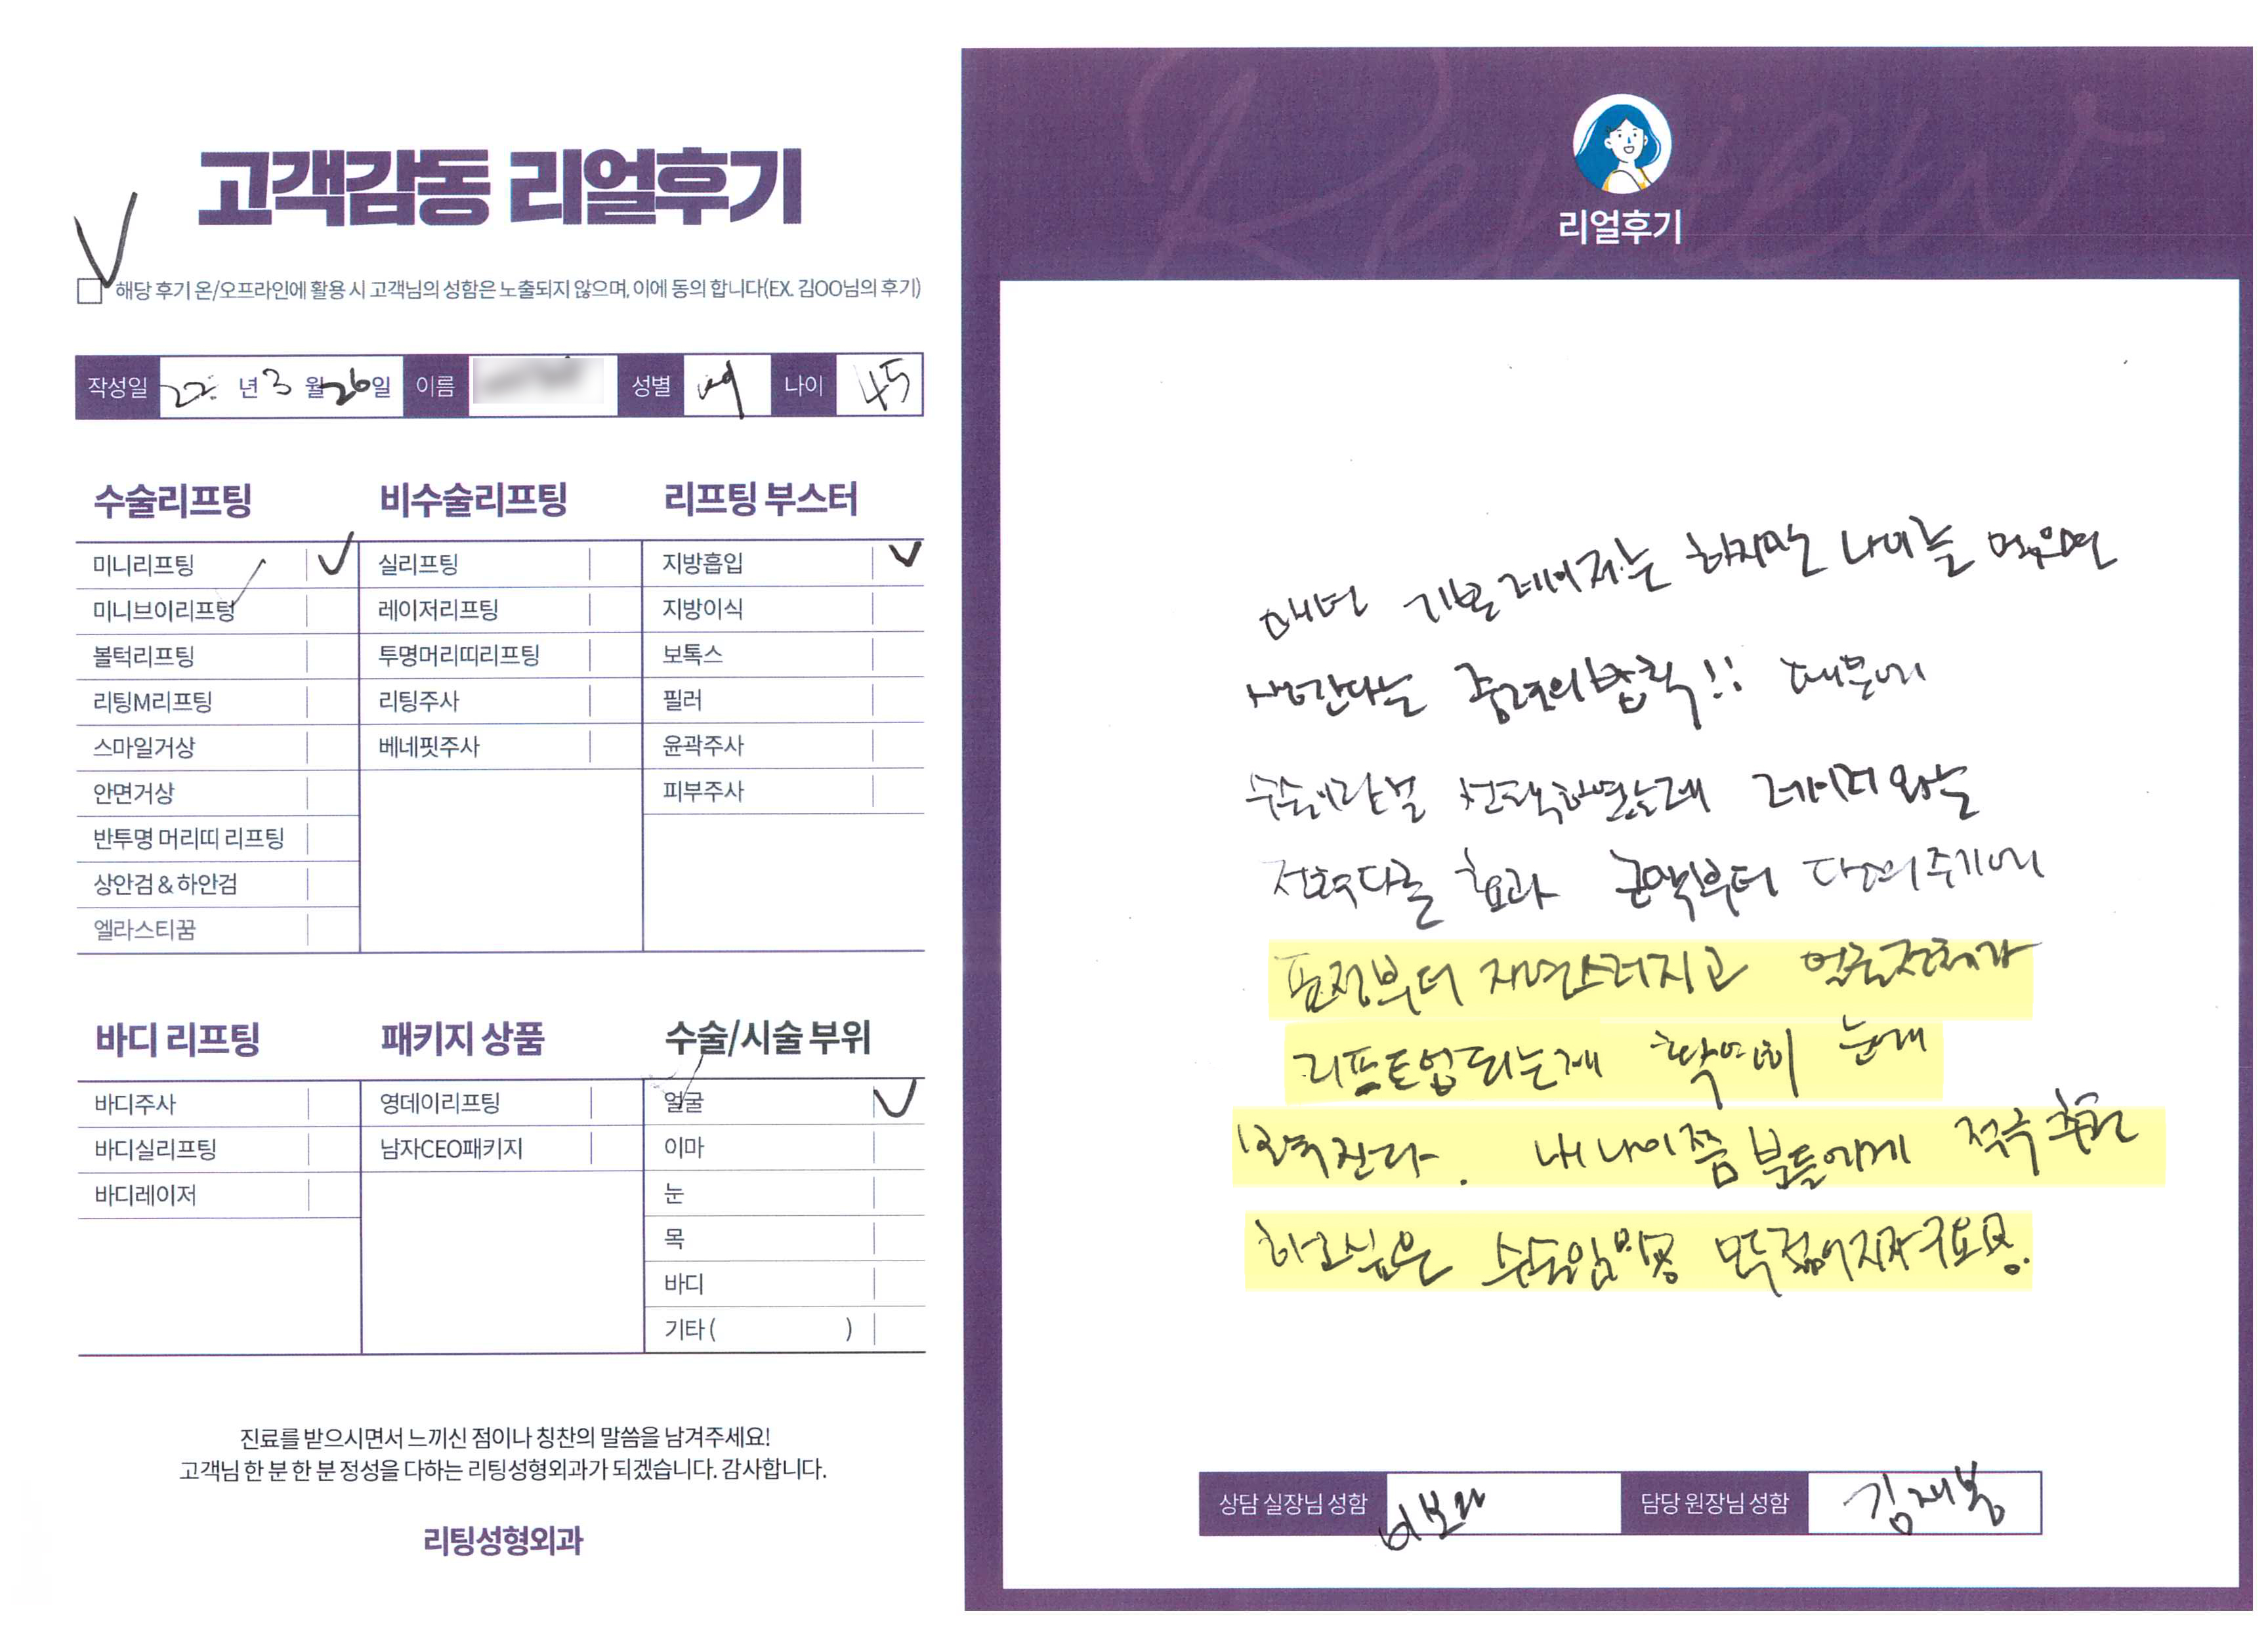 고객감동 리얼후기
해당 후기 온/오프라인에 활용 시 고객님의 성함은 노출되지 않으며, 이에 동의 합니다(EX. 김OO님의 후기)
작성일 22 년 3 월 26 일 이름 성별 여 나이 45
수술리프팅
미니리프팅
미니브이리프팅
볼턱리프팅
리팅M리프팅
스마일거상
안면거상
반투명 머리띠 리프팅
상안검 & 하안검
엘라스티꿈
비수술리프팅
실리프팅
레이저리프팅
투명머리띠리프팅
리팅주사
베네핏주사
리프팅 부스터
지방흡입
지방이식
보톡스
필러
윤곽주사
피부주사
바디 리프팅
바디주사
바디실리프팅
바디레이저
패키지 상품
영데이리프팅
남자CEO패키지
수술/시술 부위
얼굴
이마
눈
목
바디
기타 ( )
진료를 받으시면서 느끼신 점이나 칭찬의 말씀을 남겨주세요!
고객님 한 분 한 분 정성을 다하는 리팅성형외과가 되겠습니다. 감사합니다.
리팅성형외과
Review
리얼후기
매년 기본 레이저는 하지만 나이를 먹으면
중력의법칙!! 때문에
수술이란걸 선택하였는데 레이저와는
전혀다른 효과 근막부터 당겨주기에
표정부터 자연스러지고 얼굴전체가
리프트업되는게 확연히 눈에
내 나이쯤 분들에게 적극 추천
하고싶은 수술임 모두 젊어지자구요
상담 실장님 성함 이보라 담당 원장님 성함 김재봉